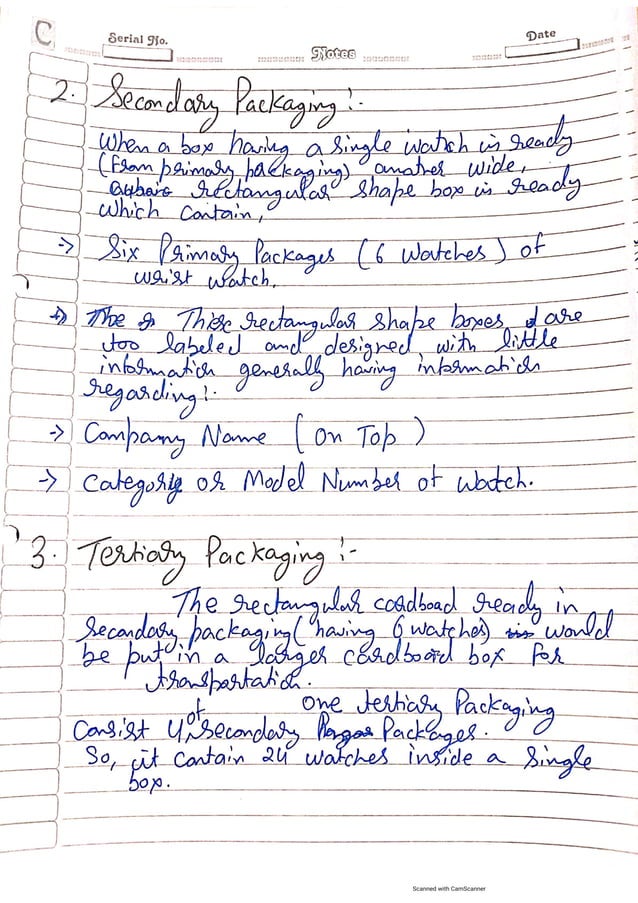 C
Serial No.
Notes
Date
2. Secondary Packaging :-
When a box having a single watch is ready
(From primary packaging) another wide,
rectangular shape box is ready
which contain,
-> Six Primary Packages (6 watches) of
wrist watch.
-> The These rectangular shape boxes are
too labeled and designed with little
information generally having information
regarding :-
-> Company Name (On Top)
-> Category or Model Number of watch.
3. Tertiary Packaging :-
The rectangular cardboad ready in
Secondary packaging (having 6 watches) would
be put in a larger cardboard box for
transportation.
One tertiary Packaging
Consist 4 of Secondary Packages.
So, it contain 24 watches inside a Single
box.
Scanned with CamScanner